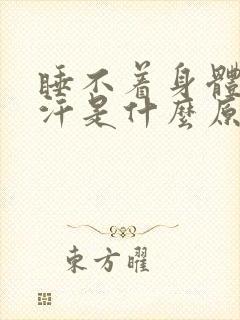 睡不着身體
汗是什麼原
東方曜